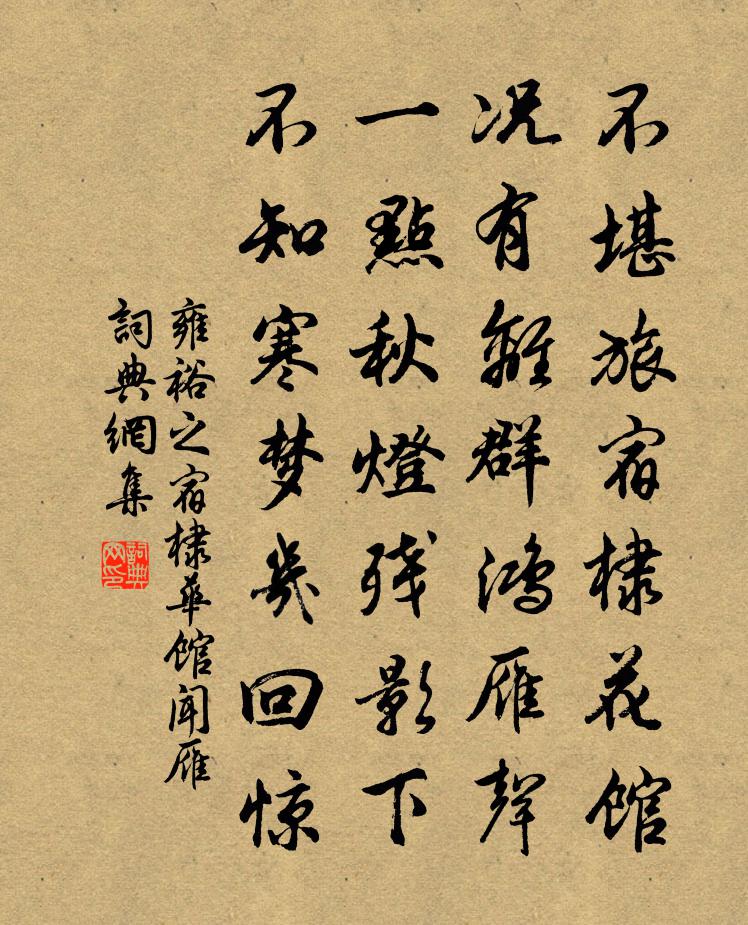 不堪旅宿棣花馆
况有離群鸿雁聲
一點秋燈残影下
不知寒梦幾回惊
雍裕之宿棣華馆闻雁
詞典網集
詞典網印